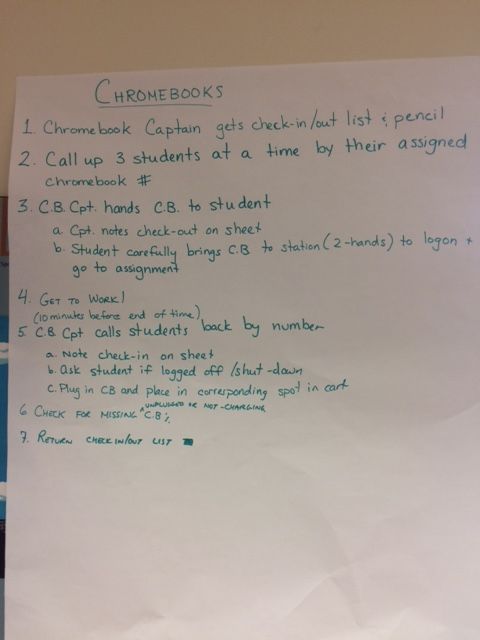 CHROMEBOOKS
1. Chromebook Captain gets check-in/out list & pencil
2. Call up 3 students at a time by their assigned
chromebook #
3. C.B. Cpt. hands C.B. to student
a. Cpt. notes check-out on sheet
b. Student carefully brings C.B to station (2-hands) to logon +
go to assignment
4. GET TO WORK!
(10 minutes before end of time)
5. C.B. Cpt calls students back by number
a. Note check-in on sheet
b. ask student if logged off /shut-down
c. Plug in CB and place in corresponding spot in cart
UNPLUGGED OR NOT-CHARGING
6 CHECK FOR MISSING ^ C.B;.
7. RETURN CHECK IN/OUT LIST